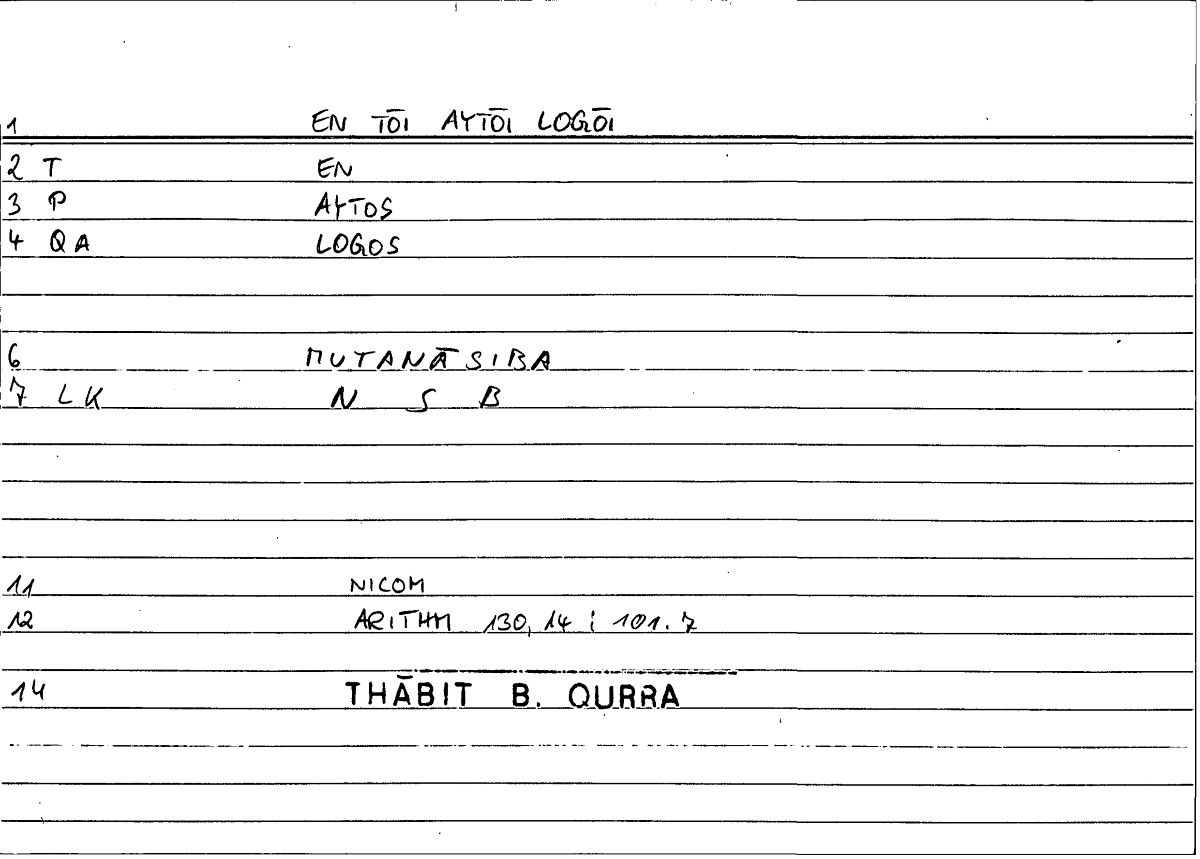 1 EN TŌI AYTŌI LOGŌI
2 T EN
3 P AYTOS
4 QA LOGOS
6 MUTANĀSIBA
7 LK N S B
11 NICOM
12 ARITHM 130,14 ; 101.7
14 THĀBIT B. QURRA